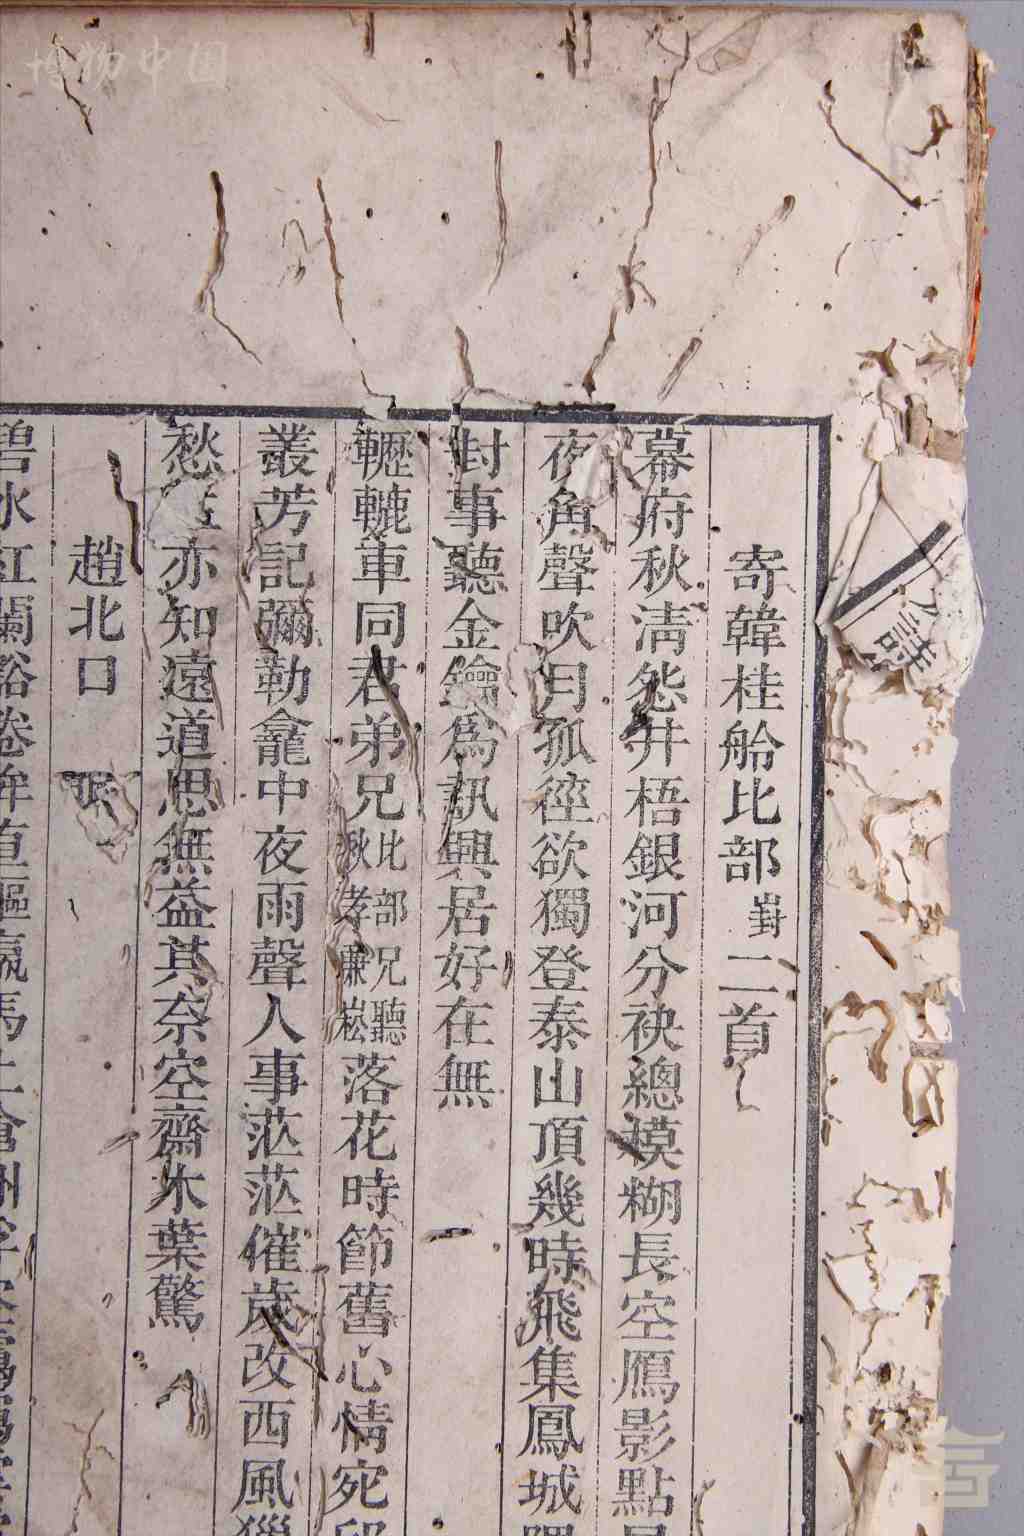 寄韓桂舲比部崶二首
幕府秋淸怨井梧銀河分袂總模糊長空鴈影點
夜角聲吹月孤徑欲獨登泰山頂幾時飛集鳳城
封事聽金鑰爲訊興居好在無
轣轆車同君弟兄比部兄聽秋孝廉崧落花時節舊心情宛
叢芳記彌勒龕中夜雨聲人事茫茫催歲改西風
愁亦知遠道思無益其奈空齋木葉驚
趙北口
碧水紅闌
博物中国